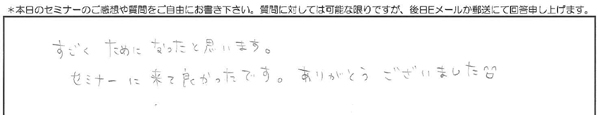 *本日のセミナーのご感想や質問をご自由にお書き下さい。質問に対しては可能な限りですが、後日Eメールか郵送にて回答申し上げます。
すごく ために なったと思います。
セミナーに 来て良かったです。ありがとう ございました